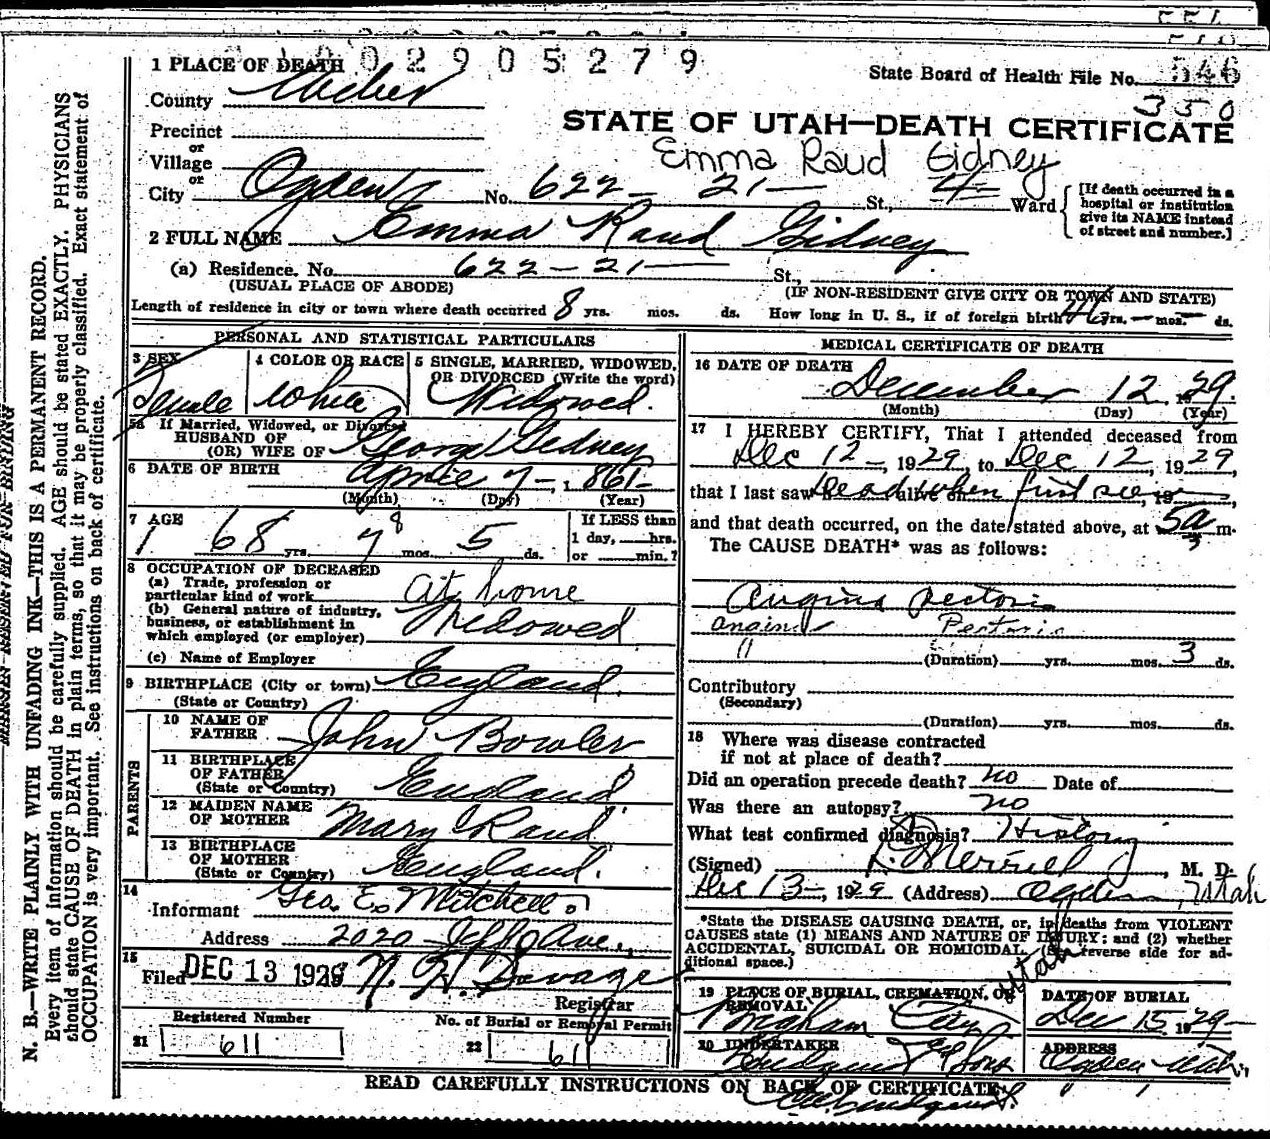 1 PLACE OF DEATH 002905279
State Board of Health File No. 546
County Weber 350
STATE OF UTAH—DEATH CERTIFICATE
Precinct
or
Village
Emma Raud Gidney
or
City Ogden No. 622 - 21 — St., 4= Ward
[If death occurred in a
hospital or institution
give its NAME instead
of street and number.]
2 FULL NAME Emma Raud Gidney
(a) Residence. No. 622 - 21 — St.,
(USUAL PLACE OF ABODE) (IF NON-RESIDENT GIVE CITY OR TOWN AND STATE)
Length of residence in city or town where death occurred 8 yrs. mos. ds. How long in U. S., if of foreign birth yrs. — mos. — ds.
PERSONAL AND STATISTICAL PARTICULARS
3 SEX Female
4 COLOR OR RACE White
5 SINGLE, MARRIED, WIDOWED,
OR DIVORCED (Write the word)
Widowed.
5a If Married, Widowed, or Divorced
HUSBAND OF
(OR) WIFE OF George Gidney
6 DATE OF BIRTH April 7 - 1861-
(Month) (Day) (Year)
7 AGE
68 yrs. 7 8 mos. 5 ds.
If LESS than
1 day, hrs.
or min.?
8 OCCUPATION OF DECEASED
(a) Trade, profession or
particular kind of work at home
(b) General nature of industry,
business, or establishment in
which employed (or employer) Widowed
(c) Name of Employer
9 BIRTHPLACE (City or town) England.
(State or Country)
PARENTS
10 NAME OF
FATHER John Bowler
11 BIRTHPLACE
OF FATHER
(State or Country) England
12 MAIDEN NAME
OF MOTHER Mary Raud
13 BIRTHPLACE
OF MOTHER
(State or Country) England.
14
Informant Geo. E. Mitchell
Address 2020 Jeff Ave.,
15
Filed DEC 13 1929 N. H. Savage
Registrar
Registered Number
21 611
No. of Burial or Removal Permit
22 611
MEDICAL CERTIFICATE OF DEATH
16 DATE OF DEATH
December 12, 1929.
(Month) (Day) (Year)
17 I HEREBY CERTIFY, That I attended deceased from
Dec 12 -, 1929, to Dec 12, 1929,
that I last saw h alive on Dead when first seen, 19
and that death occurred, on the date stated above, at 5a m.
The CAUSE DEATH* was as follows:
Angina Pectoris
Angina Pectoris
" (Duration) yrs. mos. 3 ds.
Contributory
(Secondary)
(Duration) yrs. mos. ds.
18 Where was disease contracted
if not at place of death?
Did an operation precede death? no Date of
Was there an autopsy? no
What test confirmed diagnosis? History
(Signed) Merrill, M. D.
Dec 13-, 1929 (Address) Ogden, Utah
*State the DISEASE CAUSING DEATH, or, in deaths from VIOLENT
CAUSES state (1) MEANS AND NATURE OF INJURY; and (2) whether
ACCIDENTAL, SUICIDAL OR HOMICIDAL. (See reverse side for ad-
ditional space.)
19 PLACE OF BURIAL, CREMATION, OR
REMOVAL
Brigham City Utah
DATE OF BURIAL
Dec 15 1929-
20 UNDERTAKER
Lindquist & Sons
ADDRESS
Ogden Utah.
READ CAREFULLY INSTRUCTIONS ON BACK OF CERTIFICATE.
Lindquist.
MARGIN RESERVED FOR BINDING
N. B.—WRITE PLAINLY WITH UNFADING INK—THIS IS A PERMANENT RECORD.
Every item of information should be carefully supplied. AGE should be stated EXACTLY. PHYSICIANS
should state CAUSE OF DEATH in plain terms, so that it may be properly classified. Exact statement of
OCCUPATION is very important. See instructions on back of certificate.